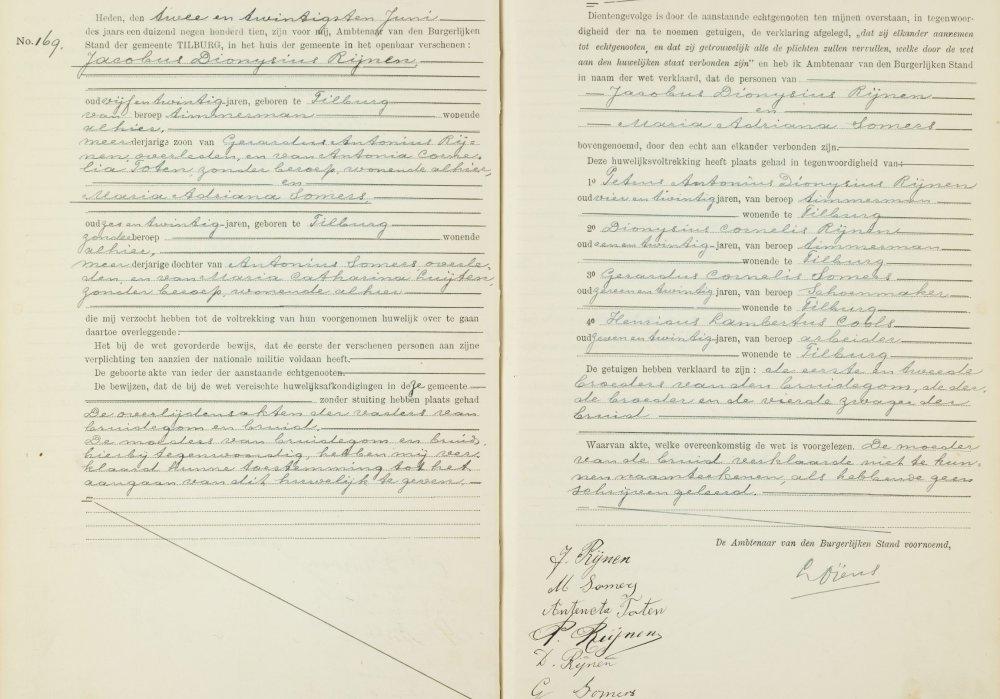 Heden, den twee en twintigsten Juni
des jaars een duizend negen honderd tien, zijn voor mij, Ambtenaar van den Burgerlijken
No. 169.
Stand der gemeente TILBURG, in het huis der gemeente in het openbaar verschenen:
Jacobus Dionysius Rijnen,
oud vijf en twintig jaren, geboren te Tilburg
van beroep timmerman wonende
alhier,
meerderjarige zoon van Gerardus Antonius Rij=
nen, overleden, en van Antonia Corne=
lia Toten, zonder beroep, wonende alhier,
en
Maria Adriana Somers,
oud zes en twintig jaren, geboren te Tilburg
zonder beroep wonende
alhier,
meerderjarige dochter van Antonius Somers, overle=
den, en van Maria Catharina Cuijten,
zonder beroep, wonende alhier
die mij verzocht hebben tot de voltrekking van hun voorgenomen huwelijk over te gaan
daartoe overleggende:
Het bij de wet gevorderde bewijs, dat de eerste der verschenen personen aan zijne
verplichting ten aanzien der nationale militie voldaan heeft.
De geboorte akte van ieder der aanstaande echtgenooten.
De bewijzen, dat de bij de wet vereischte huwelijksafkondigingen in deze gemeente
zonder stuiting hebben plaats gehad
De overlijdensakten der vaders van
bruidegom en bruid.
De moeders van bruidegom en bruid,
hierbij tegenwoordig, hebben mij ver=
klaard hunne toestemming tot het
aangaan van dit huwelijk te geven.
Dientengevolge is door de aanstaande echtgenooten ten mijnen overstaan, in tegenwoor-
digheid der na te noemen getuigen, de verklaring afgelegd, „dat zij elkander aannemen
tot echtgenooten, en dat zij getrouwelijk alle de plichten zullen vervullen, welke door de wet
aan den huwelijken staat verbonden zijn" en heb ik Ambtenaar van den Burgerlijken Stand
in naam der wet verklaard, dat de personen van
Jacobus Dionysius Rijnen
en
Maria Adriana Somers
bovengenoemd, door den echt aan elkander verbonden zijn.
Deze huwelijksvoltrekking heeft plaats gehad in tegenwoordigheid van:
1º Petrus Antonius Dionysius Rijnen
oud vier en twintig jaren, van beroep timmerman
wonende te Tilburg
2º Dionysius Cornelis Rijnen
oud een en twintig jaren, van beroep timmerman
wonende te Tilburg
3º Gerardus Cornelis Somers
oud zeven en twintig jaren, van beroep Schoenmaker
wonende te Tilburg
4º Henricus Lambertus Cools
oud zeven en twintig jaren, van beroep arbeider
wonende te Tilburg
De getuigen hebben verklaard te zijn: de eerste en tweede
broeders van den bruidegom, de der=
de broeder en de vierde zwager der
bruid
Waarvan akte, welke overeenkomstig de wet is voorgelezen. De moeder
van de bruid verklaarde niet te kun=
nen naamteekenen, als hebbende geen
schrijven geleerd.
De Ambtenaar van den Burgerlijken Stand voornoemd,
J. Rijnen
M Somers
Antoneta Toten
P. Rijnen
D. Rijnen
G Somers